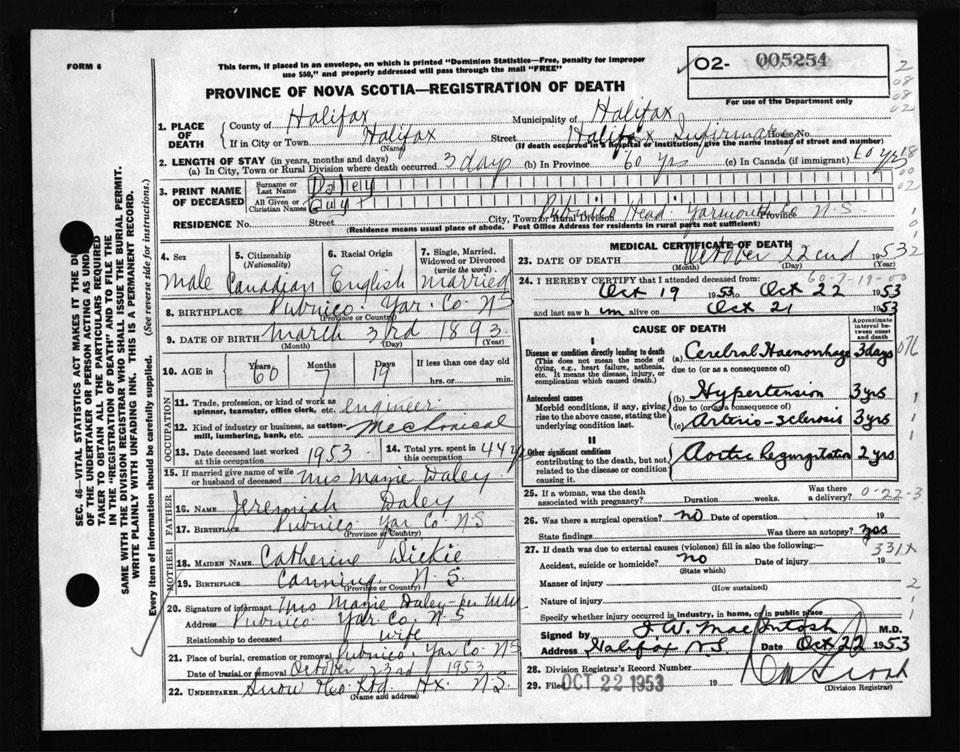 FORM 6
This form, if placed in an envelope, on which is printed "Dominion Statistics—Free, penalty for improper
use $50," and properly addressed will pass through the mail "FREE"
PROVINCE OF NOVA SCOTIA—REGISTRATION OF DEATH
02- 005254
For use of the Department only
2
08
08
02
18
00
02
SEC. 46—VITAL STATISTICS ACT MAKES IT THE DU
OF THE UNDERTAKER OR PERSON ACTING AS UND
TAKER TO OBTAIN ALL THE PARTICULARS REQUIRED
IN THE "REGISTRATION OF DEATH" AND TO FILE THE
SAME WITH THE DIVISION REGISTRAR WHO SHALL ISSUE THE BURIAL PERMIT.
WRITE PLAINLY WITH UNFADING INK. THIS IS A PERMANENT RECORD.
Every item of information should be carefully supplied. (See reverse side for instructions.)
1. PLACE OF DEATH { County of Halifax Municipality of Halifax
If in City or Town Halifax (Name) Street Halifax Infirmary House No.
(If death occurred in a hospital or institution, give the name instead of street and number)
2. LENGTH OF STAY (in years, months and days)
(a) In City, Town or Rural Division where death occurred 3 days (b) In Province 60 yrs (c) In Canada (if immigrant) 60 yrs
3. PRINT NAME OF DECEASED { Surname or Last Name Daley
All Given or Christian Names Guy
RESIDENCE No. Street City, Town or Rural Division Pubnico Head Yarmouth Co Province N.S
(Residence means usual place of abode. Post Office Address for residents in rural parts not sufficient)
4. Sex male
5. Citizenship (Nationality) Canadian
6. Racial Origin English
7. Single, Married, Widowed or Divorced (write the word) married
8. BIRTHPLACE Pubnico Yar. Co. N S
(Province or Country)
9. DATE OF BIRTH march 3rd 1893
(Month) (Day) (Year)
10. AGE in Years 60 Months 7 Days 19 If less than one day old hrs. or min.
OCCUPATION
11. Trade, profession, or kind of work as spinner, teamster, office clerk, etc. engineer
12. Kind of industry or business, as cotton-mill, lumbering, bank, etc. Mechonical
13. Date deceased last worked at this occupation 1953 14. Total yrs. spent in this occupation 44 yrs
15. If married give name of wife or husband of deceased Mrs Marie Daley
FATHER
16. Name Jeremiah Daley
17. Birthplace Pubnico Yar Co N.S
(Province or Country)
MOTHER
18. MAIDEN NAME Catherine Dickie
19. BIRTHPLACE Canning N.S.
(Province or Country)
20. Signature of informant Mrs Marie Daley per
Address Pubnico Yar Co. N.S
Relationship to deceased wife
21. Place of burial, cremation or removal Pubnico Yar Co NS
Date of burial or removal October 23rd 1953
22. UNDERTAKER Snow &Co Ltd. Hx. N.S.
(Name and address)
MEDICAL CERTIFICATE OF DEATH
23. DATE OF DEATH October 22end 1953
(Month) (Day) (Year)
60-7-19-00
24. I HEREBY CERTIFY that I attended deceased from
Oct 19 1953 to Oct 22 1953
and last saw him alive on Oct 21 1953
CAUSE OF DEATH
Approximate interval between onset and death
I
Disease or condition directly leading to death
(This does not mean the mode of dying, e.g., heart failure, asthenia, etc. It means the disease, injury, or complication which caused death.)
(a) Cerebral Haemorrhage 3 days
due to (or as a consequence of)
Antecedent causes
Morbid conditions, if any, giving rise to the above cause, stating the underlying condition last.
(b) Hypertension 3 yrs
due to (or as a consequence of)
(c) Arterio-sclerosis 3 yrs
II
Other significant conditions
contributing to the death, but not related to the disease or condition causing it.
Aortic Regurgitation 2 yrs
25. If a woman, was the death associated with pregnancy? Duration weeks. Was there a delivery? 0-22-3
26. Was there a surgical operation? no Date of operation 19
State findings Was there an autopsy? yes
27. If death was due to external causes (violence) fill in also the following:— 331X
Accident, suicide or homicide? no Date of injury 19
(State which)
Manner of injury
(How sustained)
Nature of injury
Specify whether injury occurred in industry, in home, or in public place
Signed by I. W. MacIntosh M.D.
Address Halifax N.S. Date Oct 22 1953
28. Division Registrar's Record Number
29. Filed OCT 22 1953 19
(Division Registrar)